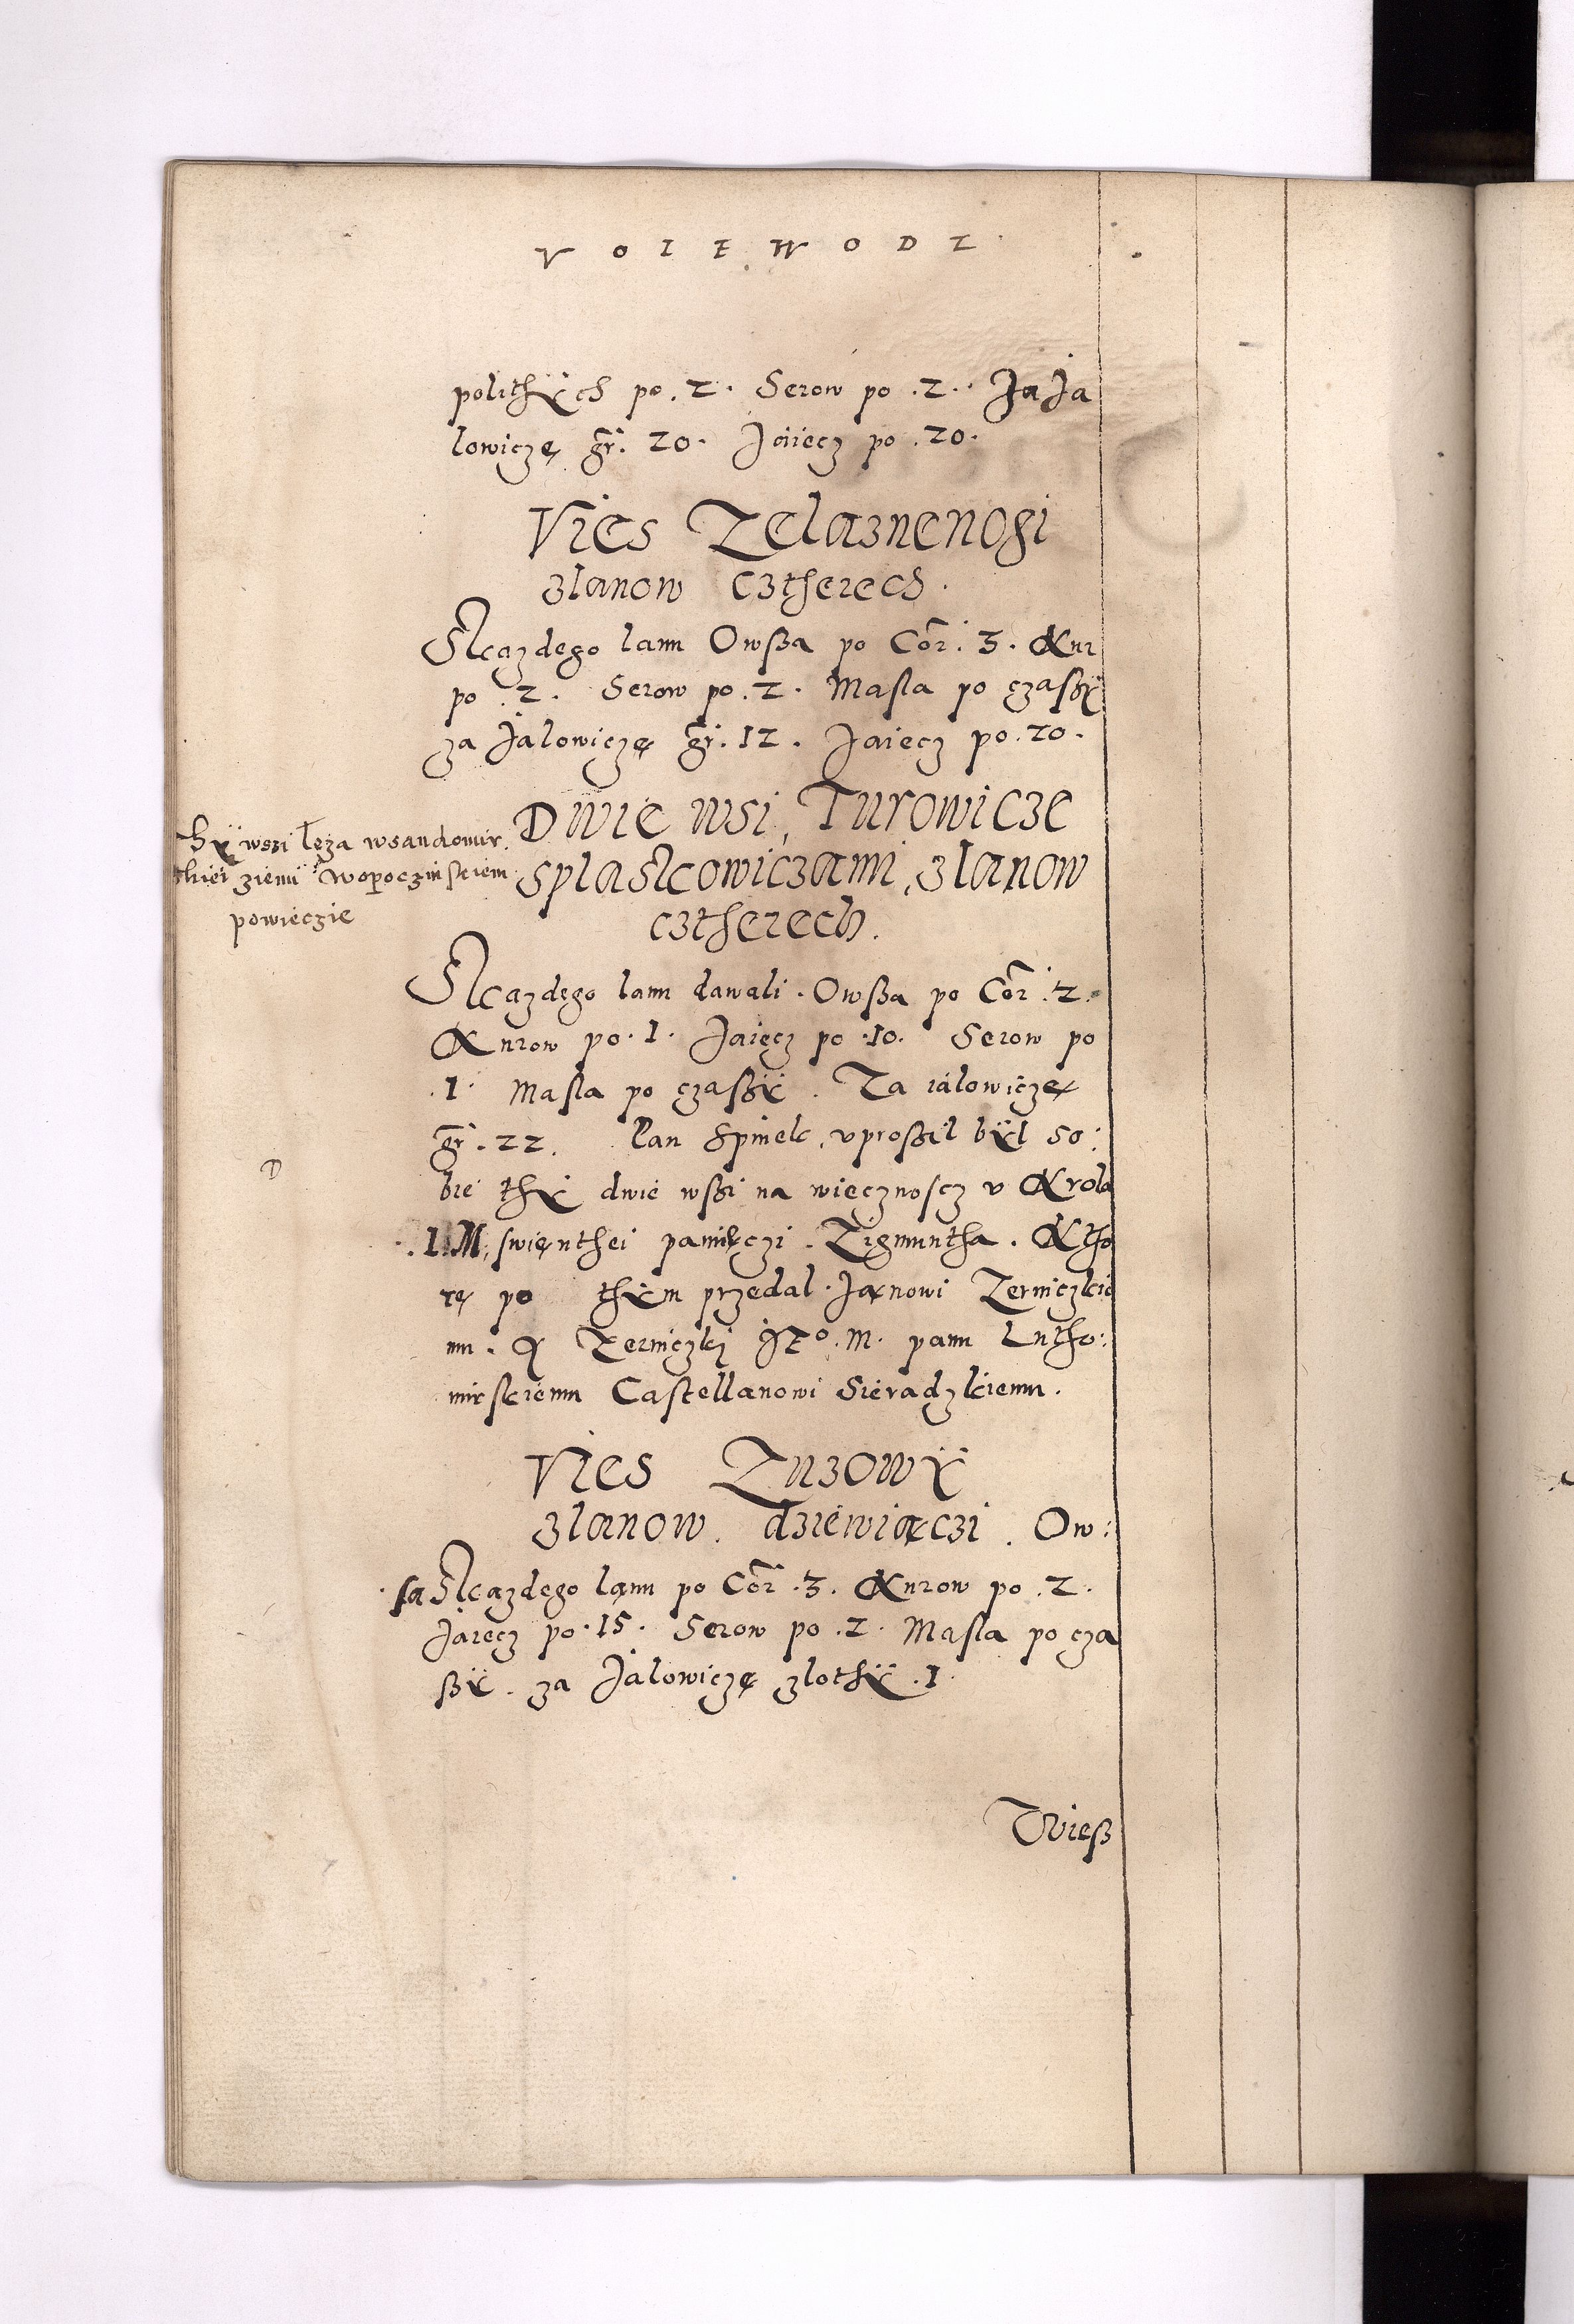 VOIEWODZ
polithÿch po .2. Serow po .2. Ja Ja
lowiczę gr. 20. Jaiecz po .20.
Vies Zelaznenogi
zlanow cztherech.
Skazdego lanu Owßa po Cor. 3. Kur
po .2. Serow po .2. Masla po czaßÿ
za Jalowiczę gr. 12. Jaiecz po .20.
Dwie wsi, Turowicze
splaskowiczami, zlanow
cztherech.
thÿ wszi leza wsandomir.
skiei ziemi wopoczinskiem
powieczie
Skazdego lanu dawali. Owßa po Cor .2.
Kurow po .1. Jaiecz po .10. Serow po
.1. Masla po czaßÿ. Za ialowiczę
gr. 22. Pan Spinek, vproßil bÿl so:
D
bie thÿ dwie wßi na wiecznoscz v Krola
.I.M. swięnthei pamięczi. Zigmuntha. Ktho
rę po thÿm przedal. Janowi Zerniczkie
mu. A Zerniczki JE°.M. panu Lutho:
mirskiemu Castellanowi Sieradzkiemu.
Vies Zuzowÿ
zlanow dziewiączi. Ow:
sa Skazdego lanu po Cor .3. Kurow po .2.
Jaiecz po .15. Serow po .2. Masla po cza
ßÿ. za Jalowiczę zlothÿ .1.
Wieß